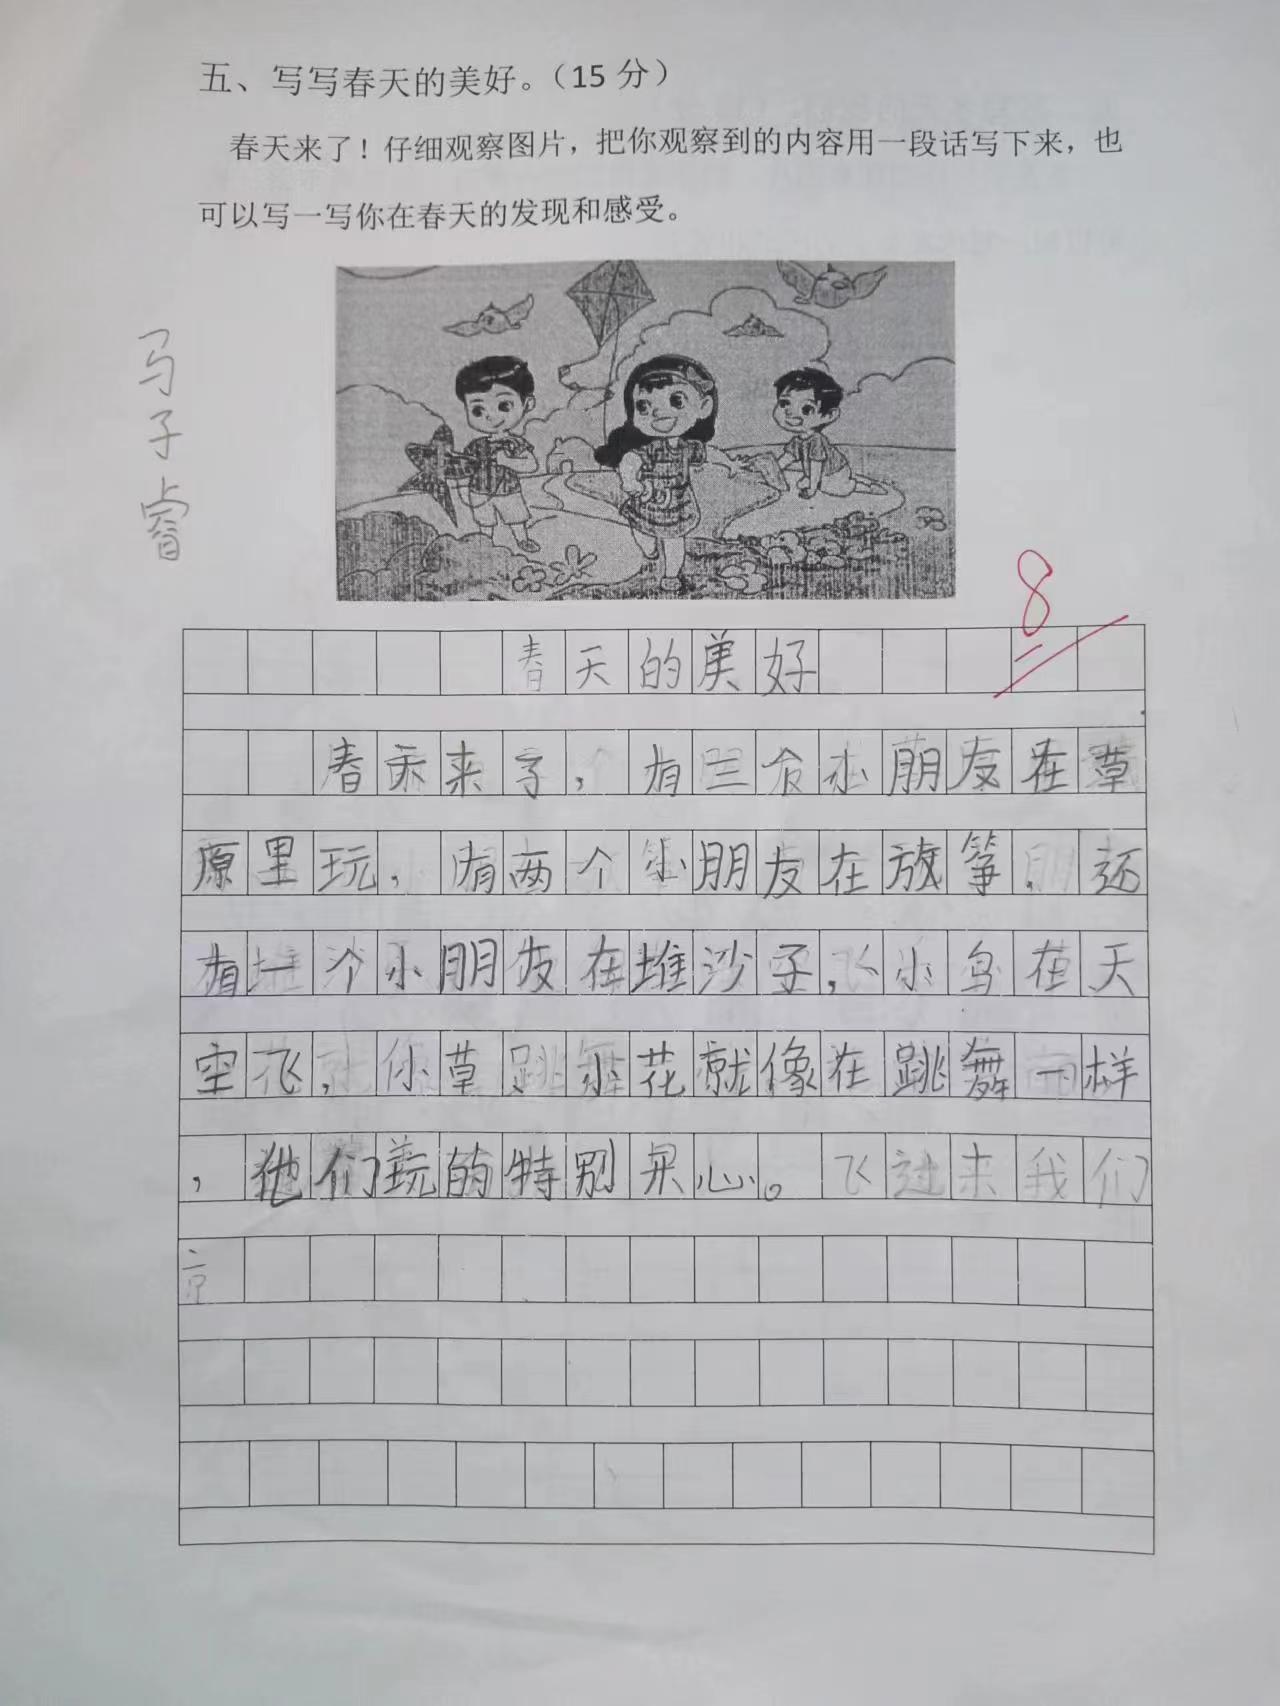 五、写写春天的美好。（15 分）
春天来了！仔细观察图片，把你观察到的内容用一段话写下来，也
可以写一写你在春天的发现和感受。
马子睿
8
春天的美好
春天来了，有三个小朋友在草
原里玩，有两个小朋友在放筝，还
有一个小朋友在堆沙子，小鸟在天
空飞，小草小花就像在跳舞一样
，他们玩的特别开心。飞过来我们